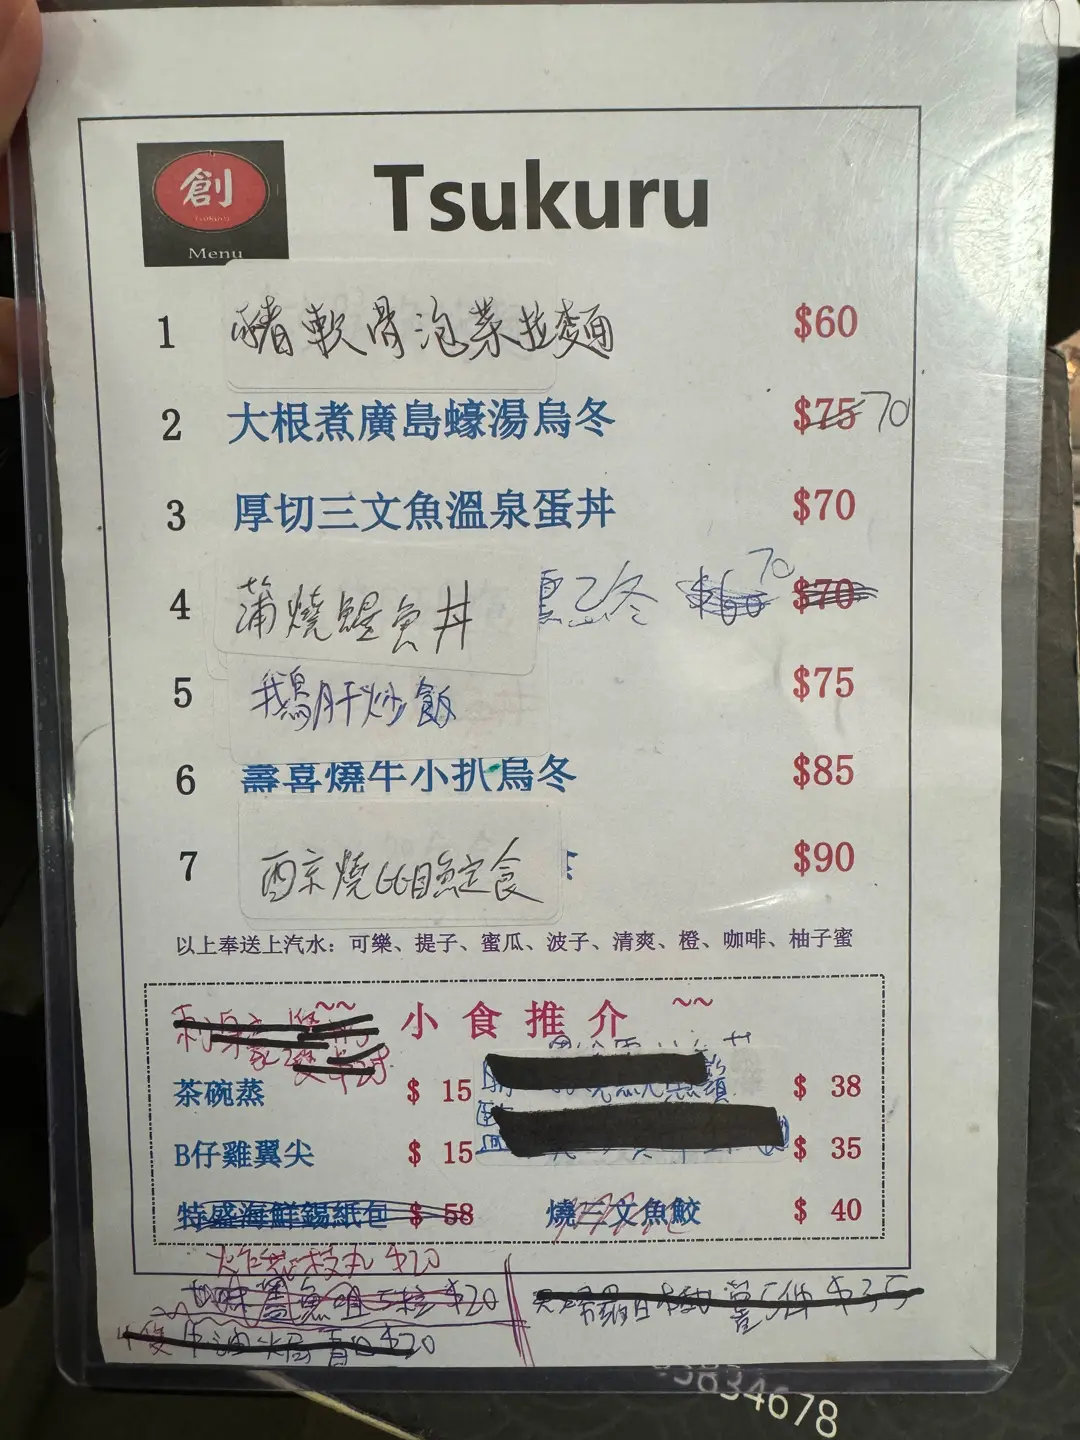 創
Tsukuru
Menu
Tsukuru
1 豬軟骨泡菜拉麵 $60
2 大根煮廣島蠔湯烏冬 $75 70
3 厚切三文魚溫泉蛋丼 $70
4 蒲燒鰻魚丼 冬 $60 70 $70
5 鵝肝炒飯 $75
6 壽喜燒牛小扒烏冬 $85
7 西京燒GG目魚定食 $90
以上奉送上汽水: 可樂、提子、蜜瓜、波子、清爽、橙、咖啡、柚子蜜
~~ 小食推介 ~~
刺身
茶碗蒸 $ 15 $ 38
B仔雞翼尖 $ 15 $ 35
特盛海鮮錫紙包 $ 58 燒三文魚鮫 $ 40
枝丸 $20
$20 5件 $35
牛油 $20
5834678